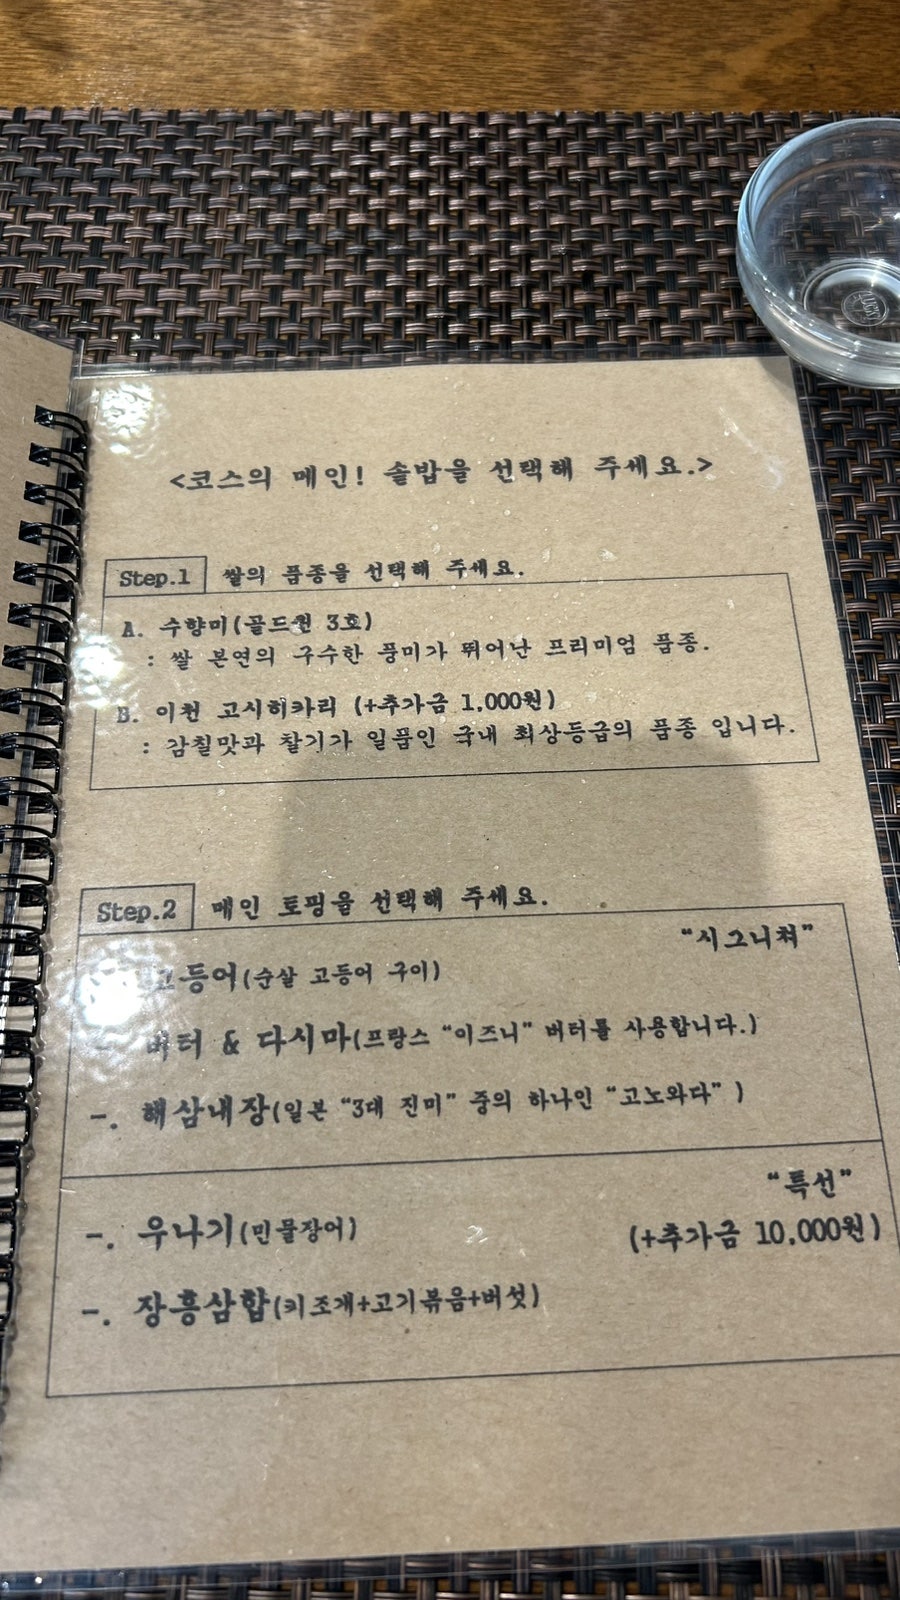 <코스의 메인! 솥밥을 선택해 주세요.>
Step.1 쌀의 품종을 선택해 주세요.
A. 수향미(골드퀸 3호)
: 쌀 본연의 구수한 풍미가 뛰어난 프리미엄 품종.
B. 이천 고시히카리 (+추가금 1,000원)
: 감칠맛과 찰기가 일품인 국내 최상등급의 품종 입니다.
Step.2 메인 토핑을 선택해 주세요.
"시그니처"
고등어(순살 고등어 구이)
버터 & 다시마(프랑스 "이즈니" 버터를 사용합니다.)
-. 해삼내장(일본 "3대 진미" 중의 하나인 "고노와다" )
"특선"
-. 우나기(민물장어) (+추가금 10,000원)
-. 장흥삼합(키조개+고기볶음+버섯)